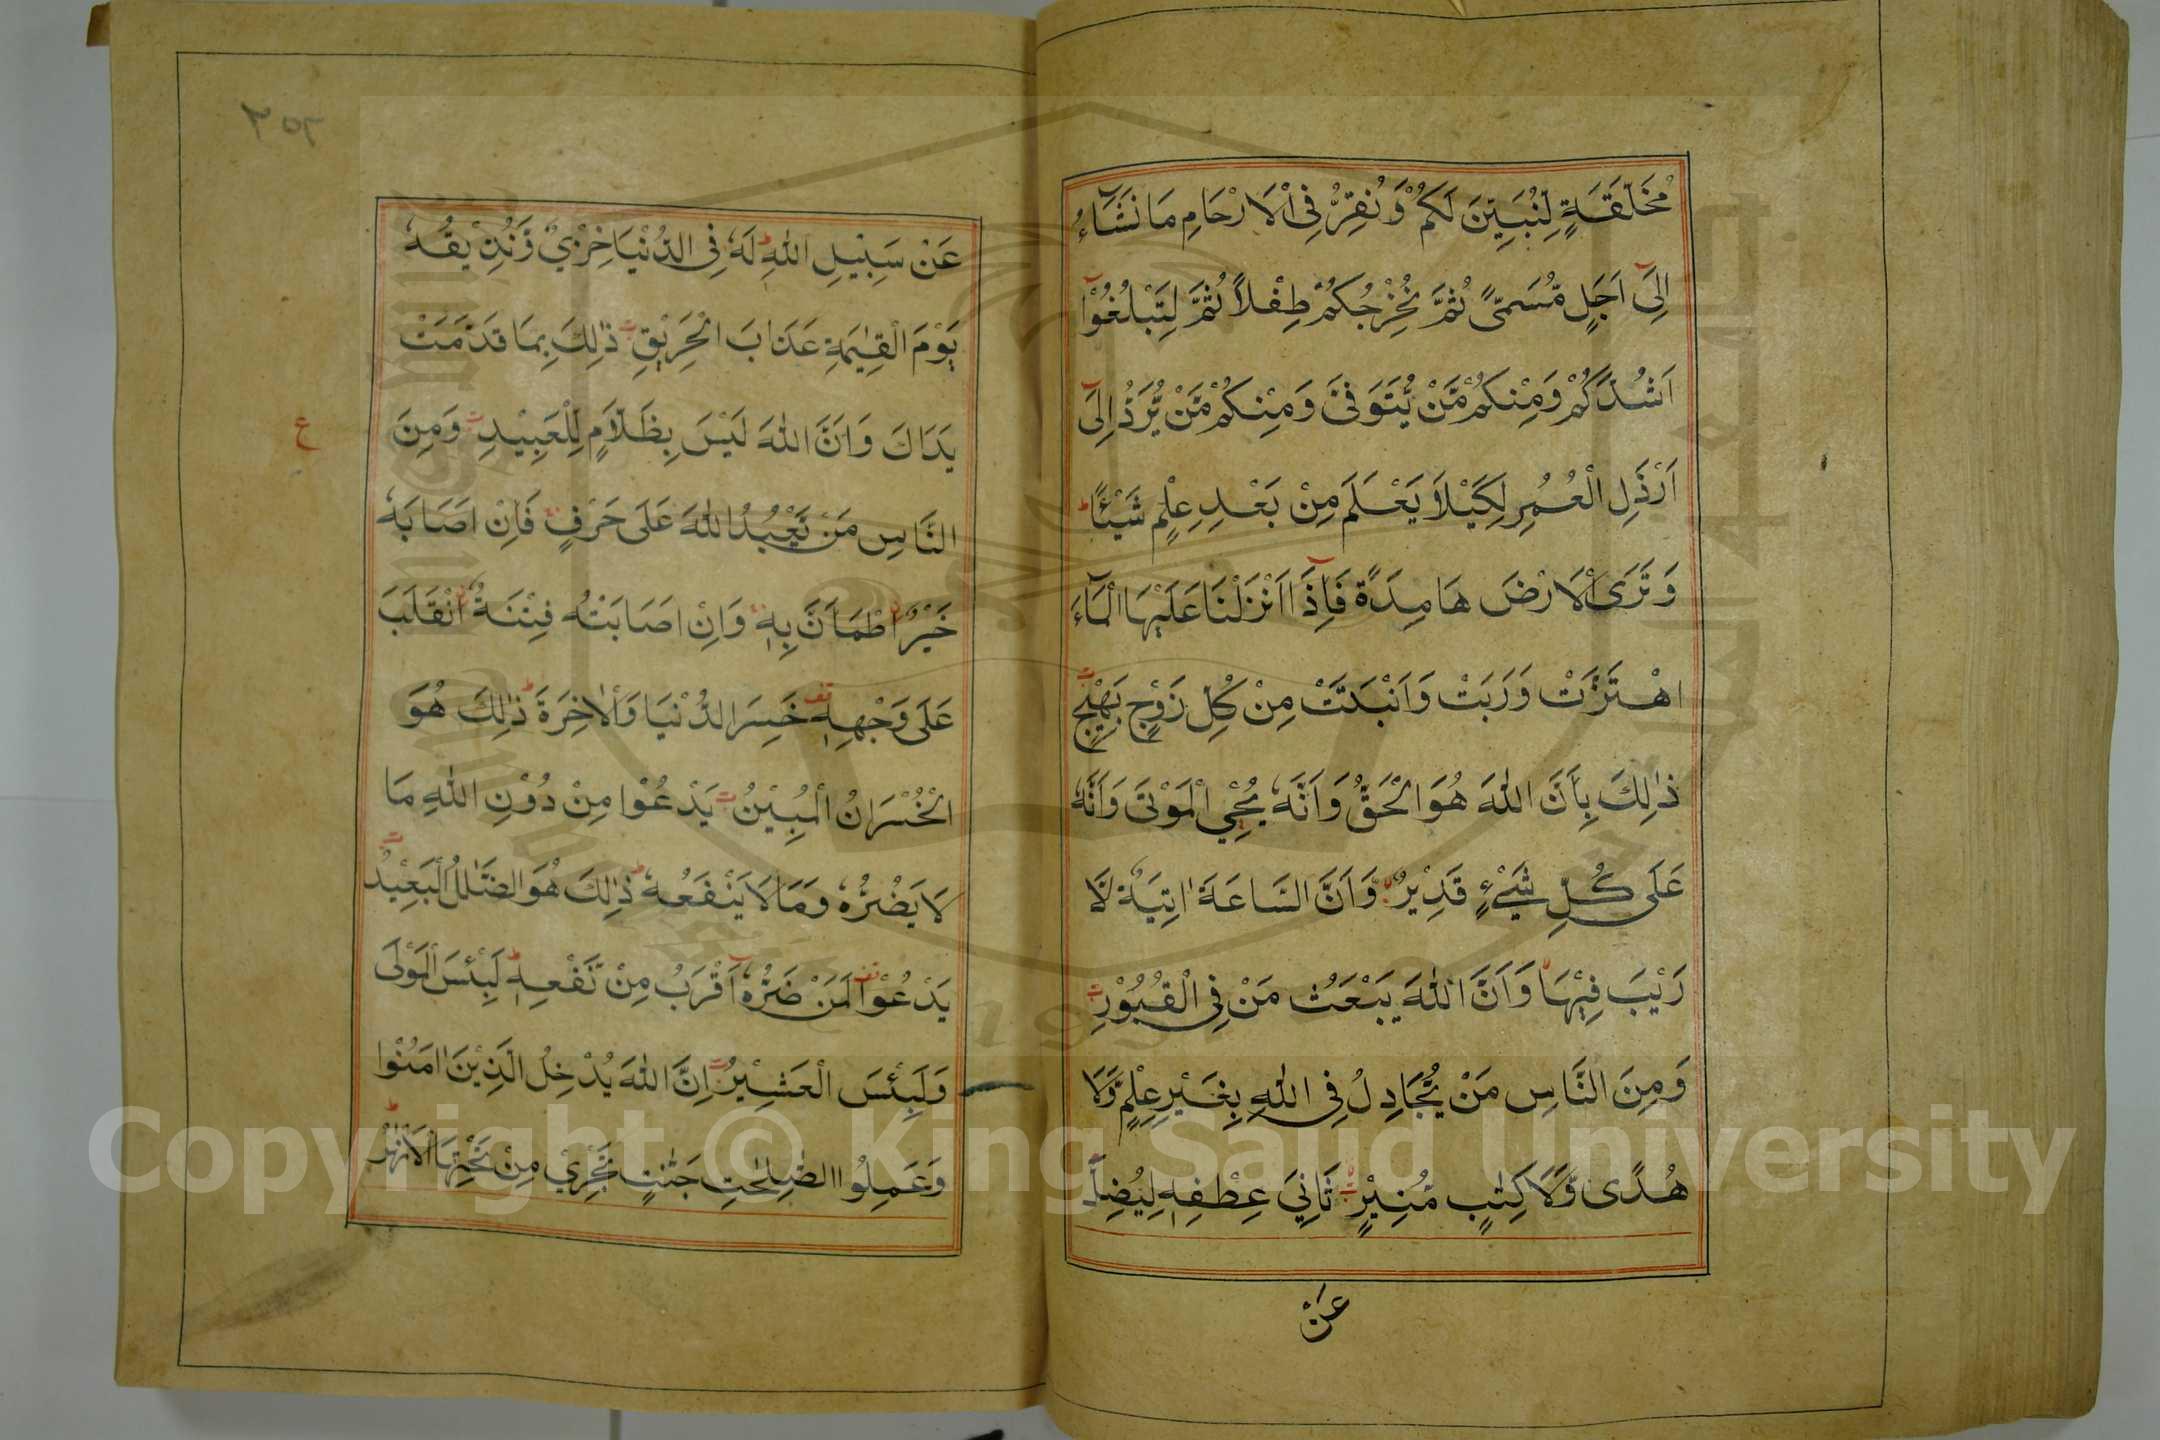 مُخَلَّقَةٍ لِّنُبَيِّنَ لَكُمْ وَنُقِرُّ فِي الْاَرْحَامِ مَا نَشَآءُ
اِلٰٓى اَجَلٍ مُّسَمًّى ثُمَّ نُخْرِجُكُمْ طِفْلًا ثُمَّ لِتَبْلُغُوْٓا
اَشُدَّكُمْ وَمِنْكُمْ مَّنْ يُّتَوَفّٰى وَمِنْكُمْ مَّنْ يُّرَدُّ اِلٰٓى
اَرْذَلِ الْعُمُرِ لِكَيْلَا يَعْلَمَ مِنْ بَعْدِ عِلْمٍ شَيْئًا ط
وَتَرَى الْاَرْضَ هَامِدَةً فَاِذَآ اَنْزَلْنَا عَلَيْهَا الْمَآءَ
اهْتَزَّتْ وَرَبَتْ وَاَنْبَتَتْ مِنْ كُلِّ زَوْجٍ بَهِيْجٍ
ذٰلِكَ بِاَنَّ اللّٰهَ هُوَ الْحَقُّ وَاَنَّهٗ يُحْيِ الْمَوْتٰى وَاَنَّهٗ
عَلٰى كُلِّ شَيْءٍ قَدِيْرٌ وَّاَنَّ السَّاعَةَ اٰتِيَةٌ لَّا
رَيْبَ فِيْهَا وَاَنَّ اللّٰهَ يَبْعَثُ مَنْ فِي الْقُبُوْرِ
وَمِنَ النَّاسِ مَنْ يُّجَادِلُ فِي اللّٰهِ بِغَيْرِ عِلْمٍ وَّلَا
هُدًى وَّلَا كِتٰبٍ مُّنِيْرٍ ثَانِيَ عِطْفِهٖ لِيُضِلَّ
عَنْ
٢٥٢
عَنْ سَبِيْلِ اللّٰهِ ط لَهٗ فِي الدُّنْيَا خِزْيٌ وَّنُذِيْقُهٗ
يَوْمَ الْقِيٰمَةِ عَذَابَ الْحَرِيْقِ ذٰلِكَ بِمَا قَدَّمَتْ
يَدَاكَ وَاَنَّ اللّٰهَ لَيْسَ بِظَلَّامٍ لِّلْعَبِيْدِ وَمِنَ
ع
النَّاسِ مَنْ يَّعْبُدُ اللّٰهَ عَلٰى حَرْفٍ فَاِنْ اَصَابَهٗ
خَيْرٌ اطْمَاَنَّ بِهٖ وَاِنْ اَصَابَتْهُ فِتْنَةٌ انْقَلَبَ
عَلٰى وَجْهِهٖ خَسِرَ الدُّنْيَا وَالْاٰخِرَةَ ط ذٰلِكَ هُوَ
الْخُسْرَانُ الْمُبِيْنُ يَدْعُوْا مِنْ دُوْنِ اللّٰهِ مَا
لَا يَضُرُّهٗ وَمَا لَا يَنْفَعُهٗ ط ذٰلِكَ هُوَ الضَّلٰلُ الْبَعِيْدُ
يَدْعُوْا لَمَنْ ضَرُّهٗٓ اَقْرَبُ مِنْ نَّفْعِهٖ ط لَبِئْسَ الْمَوْلٰى
وَلَبِئْسَ الْعَشِيْرُ اِنَّ اللّٰهَ يُدْخِلُ الَّذِيْنَ اٰمَنُوْا
وَعَمِلُوا الصّٰلِحٰتِ جَنّٰتٍ تَجْرِيْ مِنْ تَحْتِهَا الْاَنْهٰرُ ط
Copyright © King Saud University